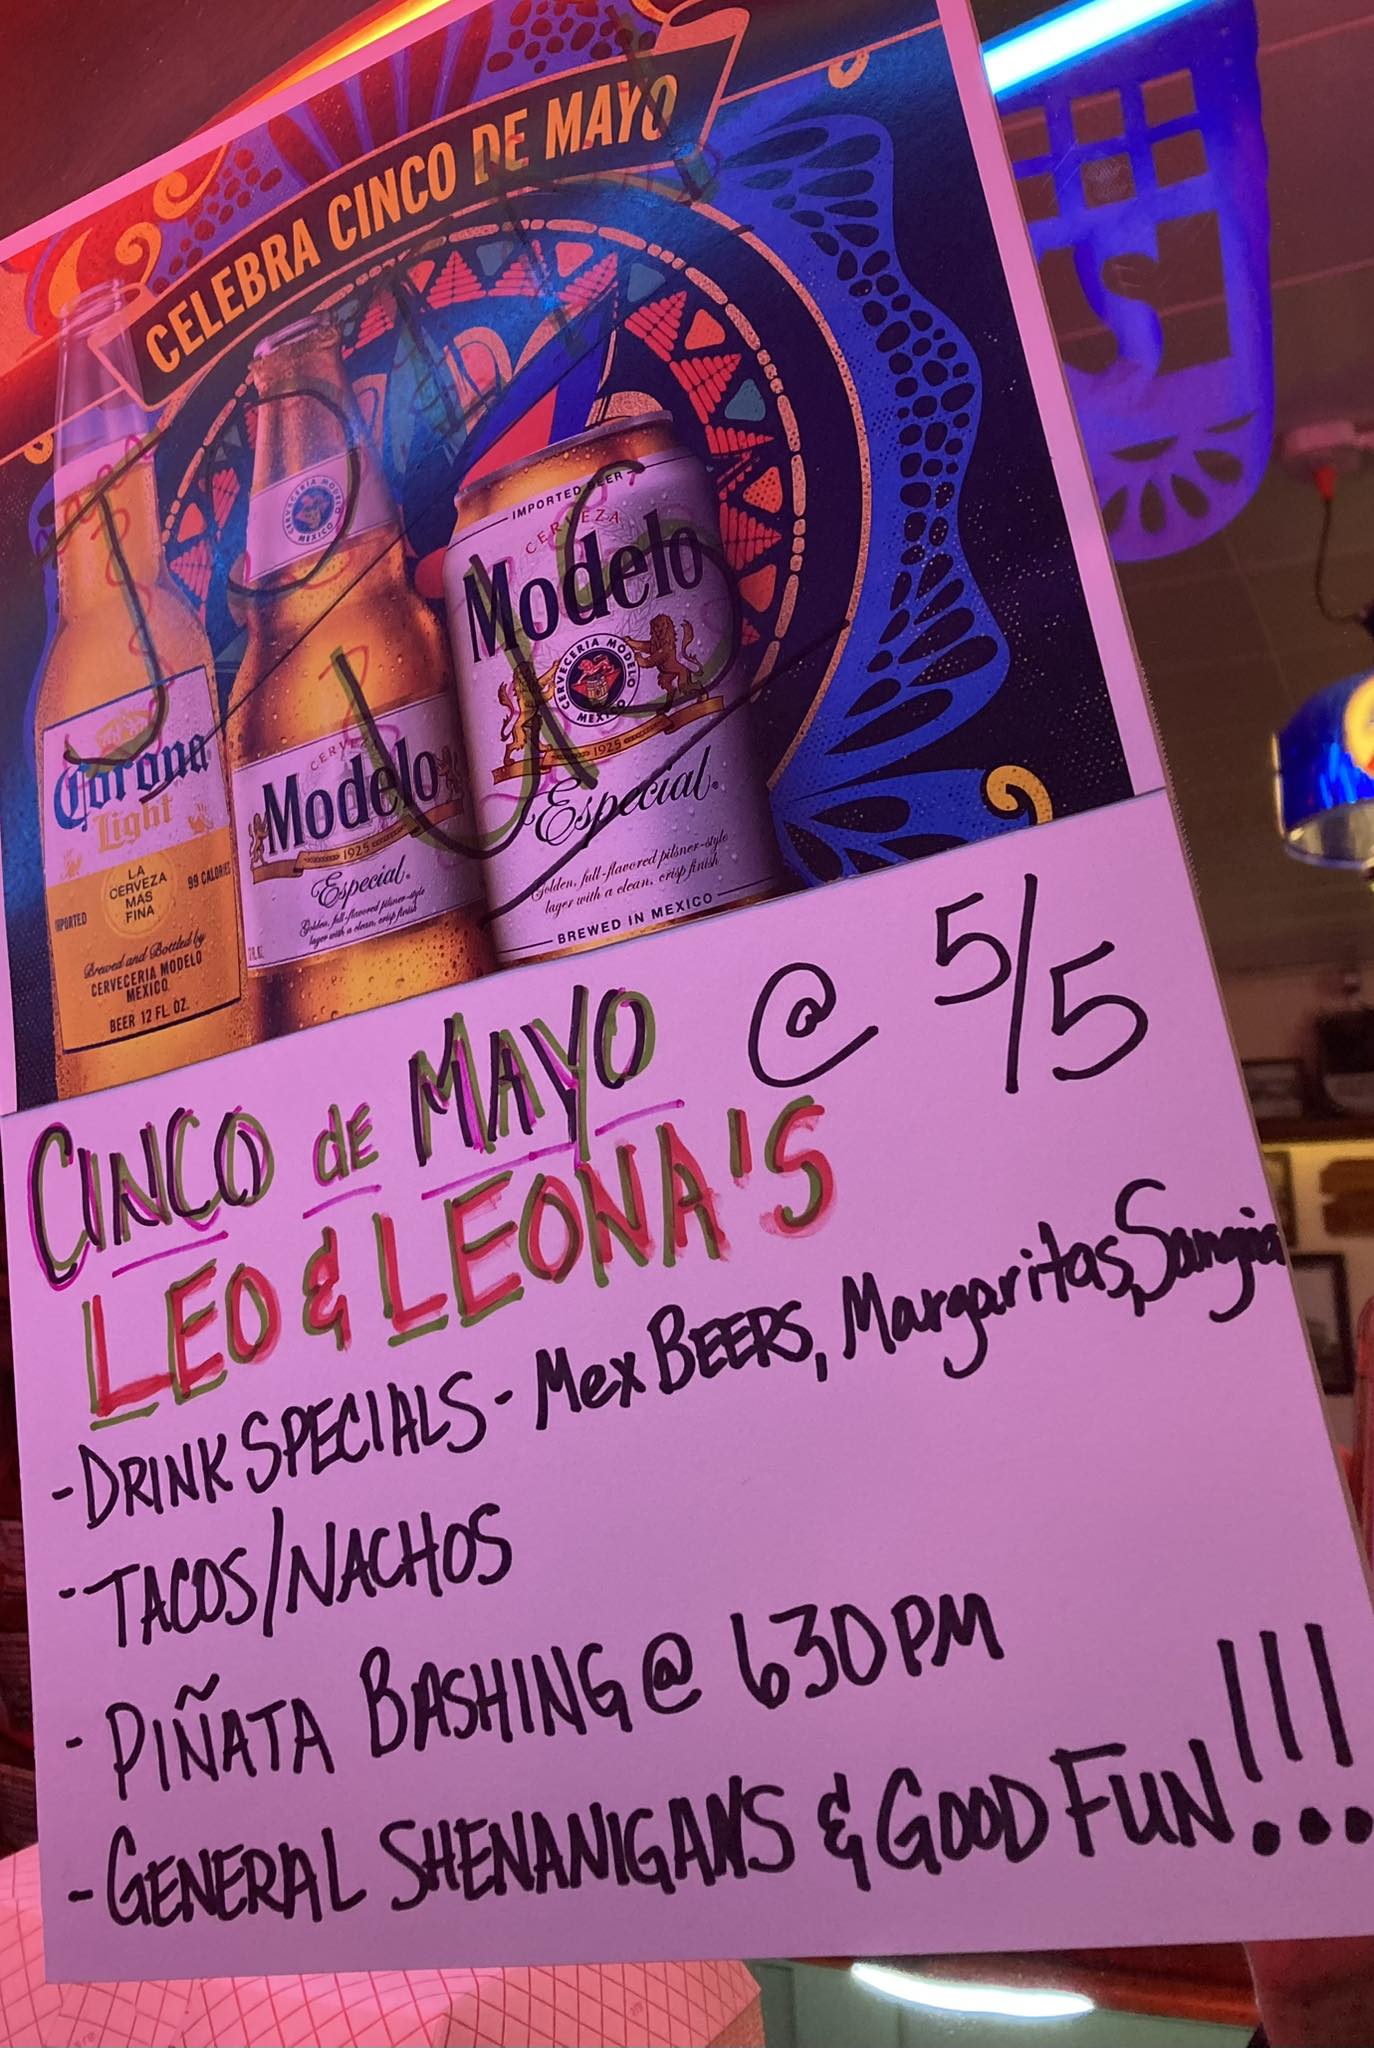 CELEBRA CINCO DE MAYO
JOIN
US
Corona
Light
LA
CERVEZA
MAS
FINA
IMPORTED
99 CALORIES
Brewed and Bottled by
CERVECERIA MODELO
MEXICO
BEER 12 FL. OZ.
CERVECERIA MODELO
MEXICO
CERVEZA
Modelo
1925
Especial
Golden, full-flavored pilsner-style
lager with a clean, crisp finish
IMPORTED BEER
CERVEZA
Modelo
CERVECERIA MODELO
MEXICO
1925
Especial
Golden, full-flavored pilsner-style
lager with a clean, crisp finish
BREWED IN MEXICO
CINCO de MAYO @ 5/5
LEO & LEONA'S
-DRINK SPECIALS - Mex BEERS, Margaritas, Sangria
-TACOS/NACHOS
- PIÑATA BASHING @ 630PM
- GENERAL SHENANIGANS & GOOD FUN!!!